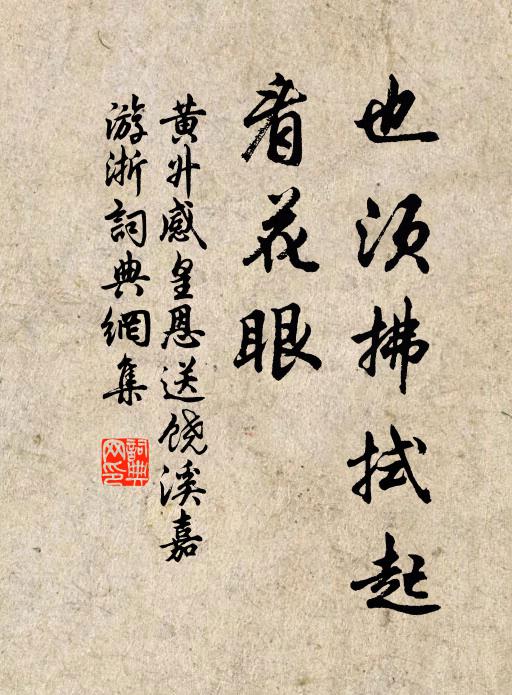 也须拂拭起
看花眼
黄升感皇恩送饶溪嘉
游浙詞典網集
詞典网印